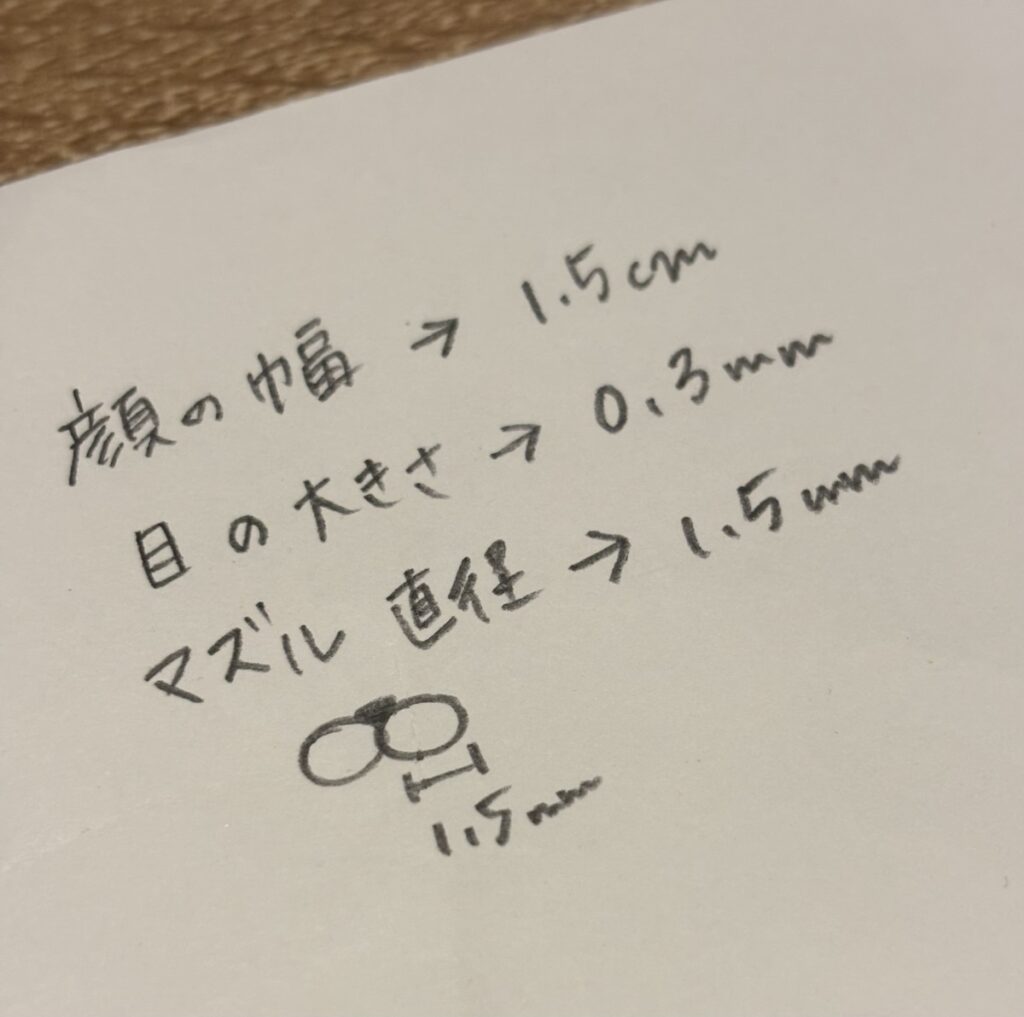 顔の幅 → 1.5cm
目の大きさ → 0.3mm
マズル 直径 → 1.5mm
1.5mm